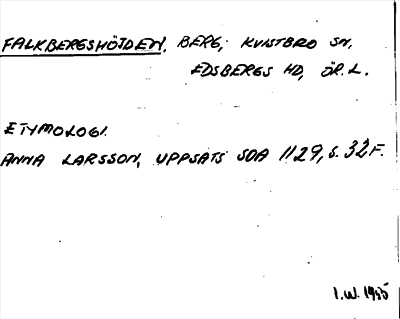 FALKBERGSHÖJDEN, BERG, KVISTBRO SN,
EDSBERGS HD, ÖR. L.
ETYMOLOGI.
ANNA LARSSON, UPPSATS SOA 1129, S. 32 F.
I.W. 1955